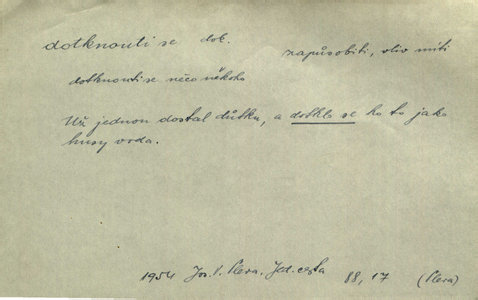 dotknouti se dok. zapůsobiti, vliv míti
dotknouti se něco někoho
Už jednou dostal důtku, a dotklo se ho to jako
husy voda.
1954 Jos. V. Pleva. Jed. cesta 88, 17 (Pleva)